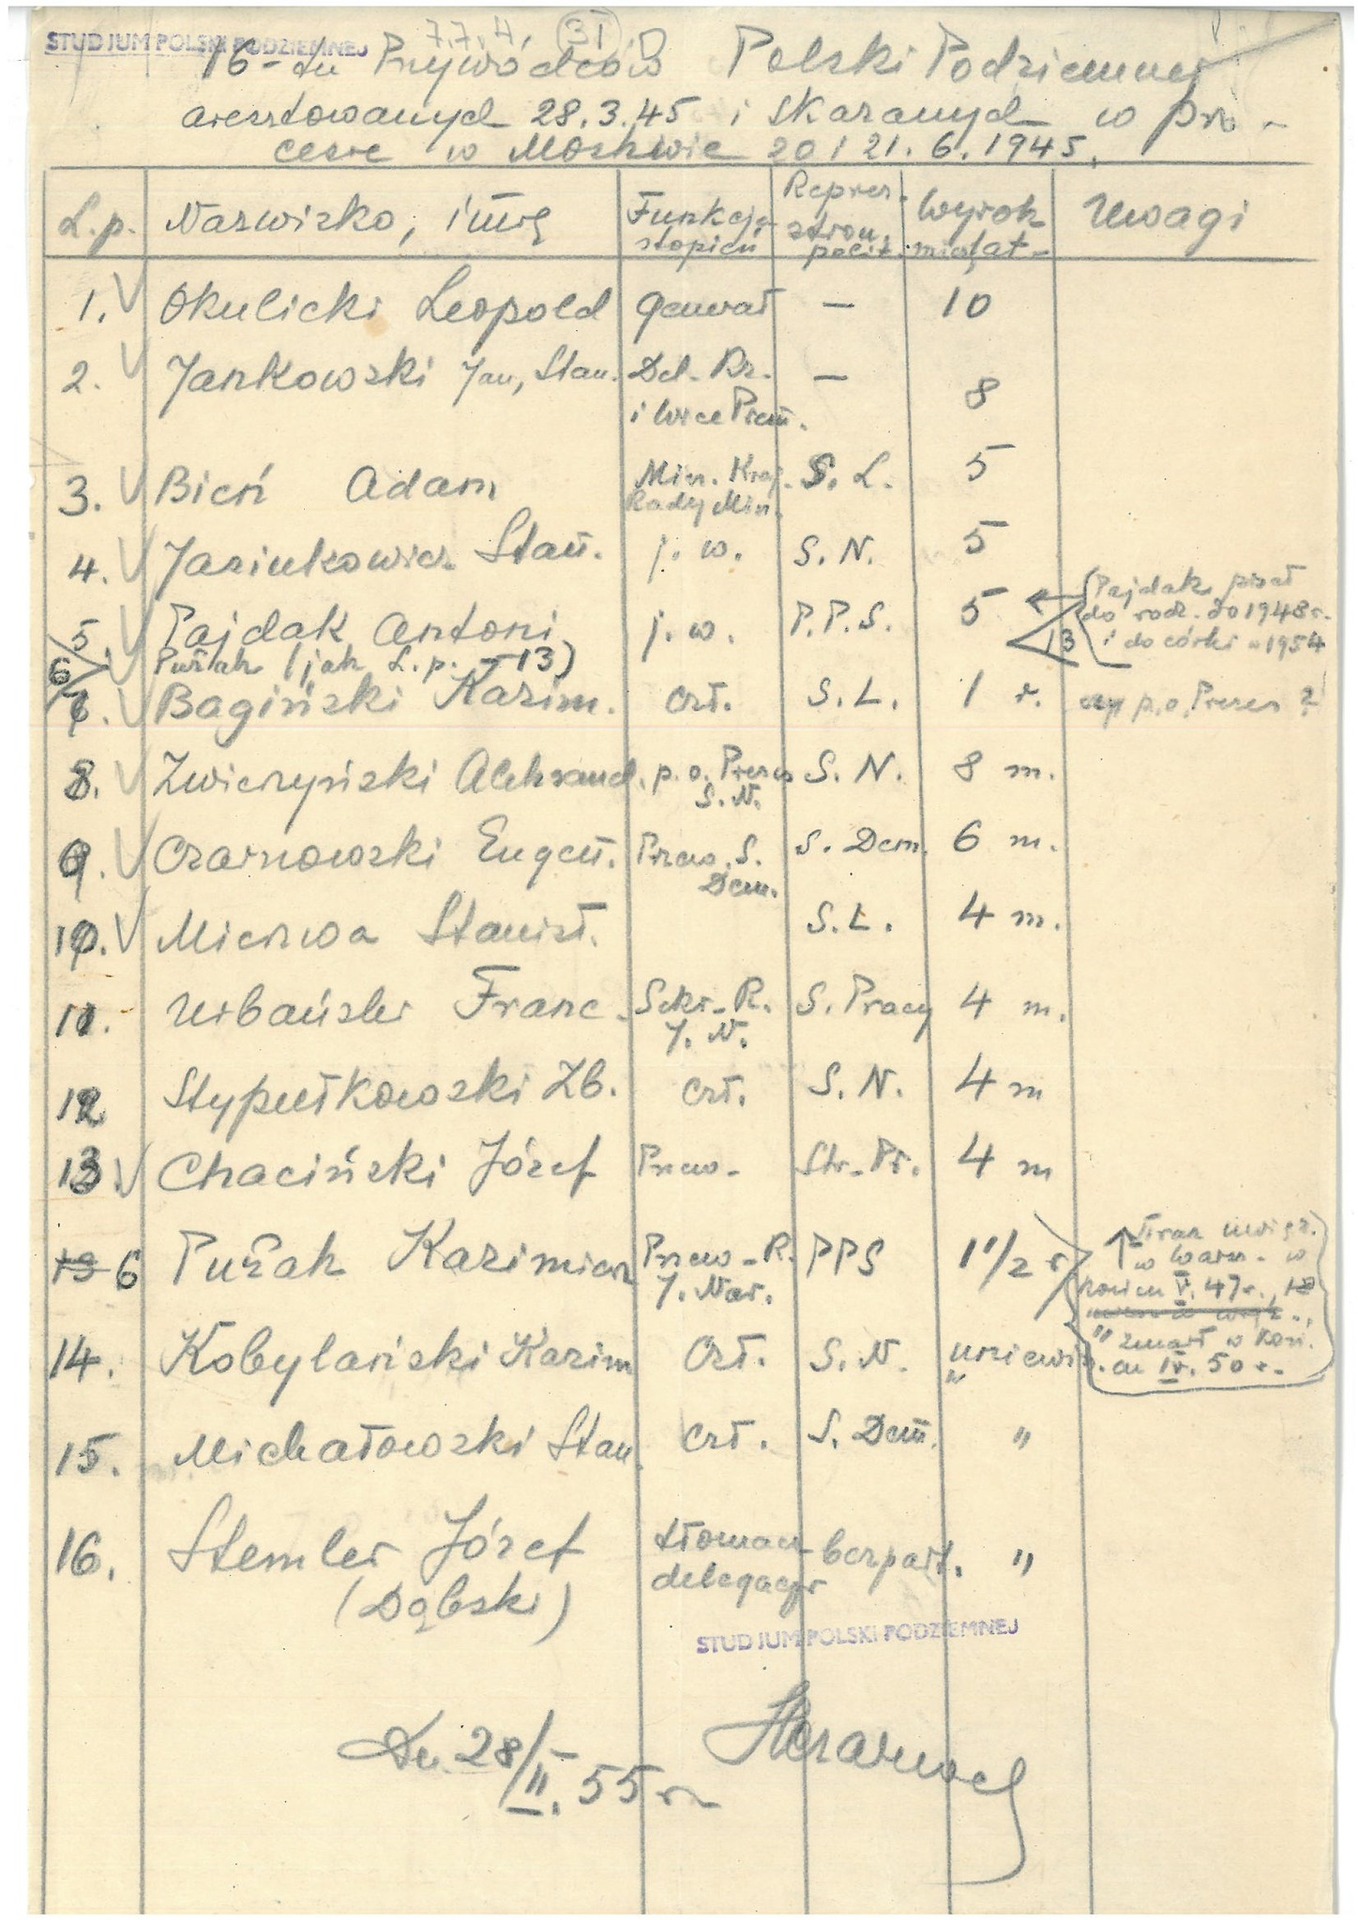 STUDJUM POLSKI PODZIEMNEJ
7.7.4. 31
16-tu Przywódców Polski Podziemnej
aresztowanych 28.3.45 i skazanych w pro-
cesie w Moskwie 20 i 21.6.1945.
L.p. Nazwisko, imię Funkcja stopień Reprez. stron. polit. Wyrok mies. lat Uwagi
1. Okulicki Leopold generał — 10
2. Jankowski Jan, Stan. Del. Rz. — 8
i Wice Prem.
3. Bień Adam Min. Kraj. S. L. 5
Rady Min.
4. Jasiukowicz Stan. j. w. S. N. 5
5. Pajdak Antoni j. w. P.P.S. 5 Pajdak pisał
do rodz. do 1948 r.
i do córki w 1954
6 Pużak (jak L.p. – 13) 13
7. Bagiński Kazim. czł. S. L. 1 r. czy p.o. Prezes ?
8. Zwierzyński Aleksand. p. o. Prezes S. N. 8 m.
S. N.
9. Czarnowski Eugen. Przew. S. S. Dem. 6 m.
Dem.
10. Mierzwa Stanisł. S. L. 4 m.
11. Urbański Franc. Sekr. R. S. Pracy 4 m.
J. N.
12 Stypułkowski Zb. czł. S. N. 4 m
13. Chaciński Józef Przew. Str. Pr. 4 m
13 6 Pużak Kazimierz Przew. R. PPS 1 1/2 r
J. Nar.
w Warsz. w
V. 47 r.,
" zmarł w
IV. 50 r.
14. Kobylański Kazim Czł. S. N. uniewin.
15. Michałowski Stan. czł. S. Dem. "
16. Stemler Józef tłomacz bezpart. "
(Dąbski) delegacji
STUDJUM POLSKI PODZIEMNEJ
Dn. 28/II. 55 r.